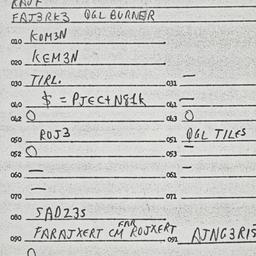 FAJ3RK3 QGL BURNER
010 KOM3N
020 KEM3N
030 TIRL. 031 —
040 $ = PJECTN81K 041 —
042 O 043 O
050 ROJ3 051 QGL TILES
052 O 053 —
060 — 061 —
— 071
080 SAD23S
FAR
090 FARAJXERT CM ROJXERT 091 AJNG3RIS